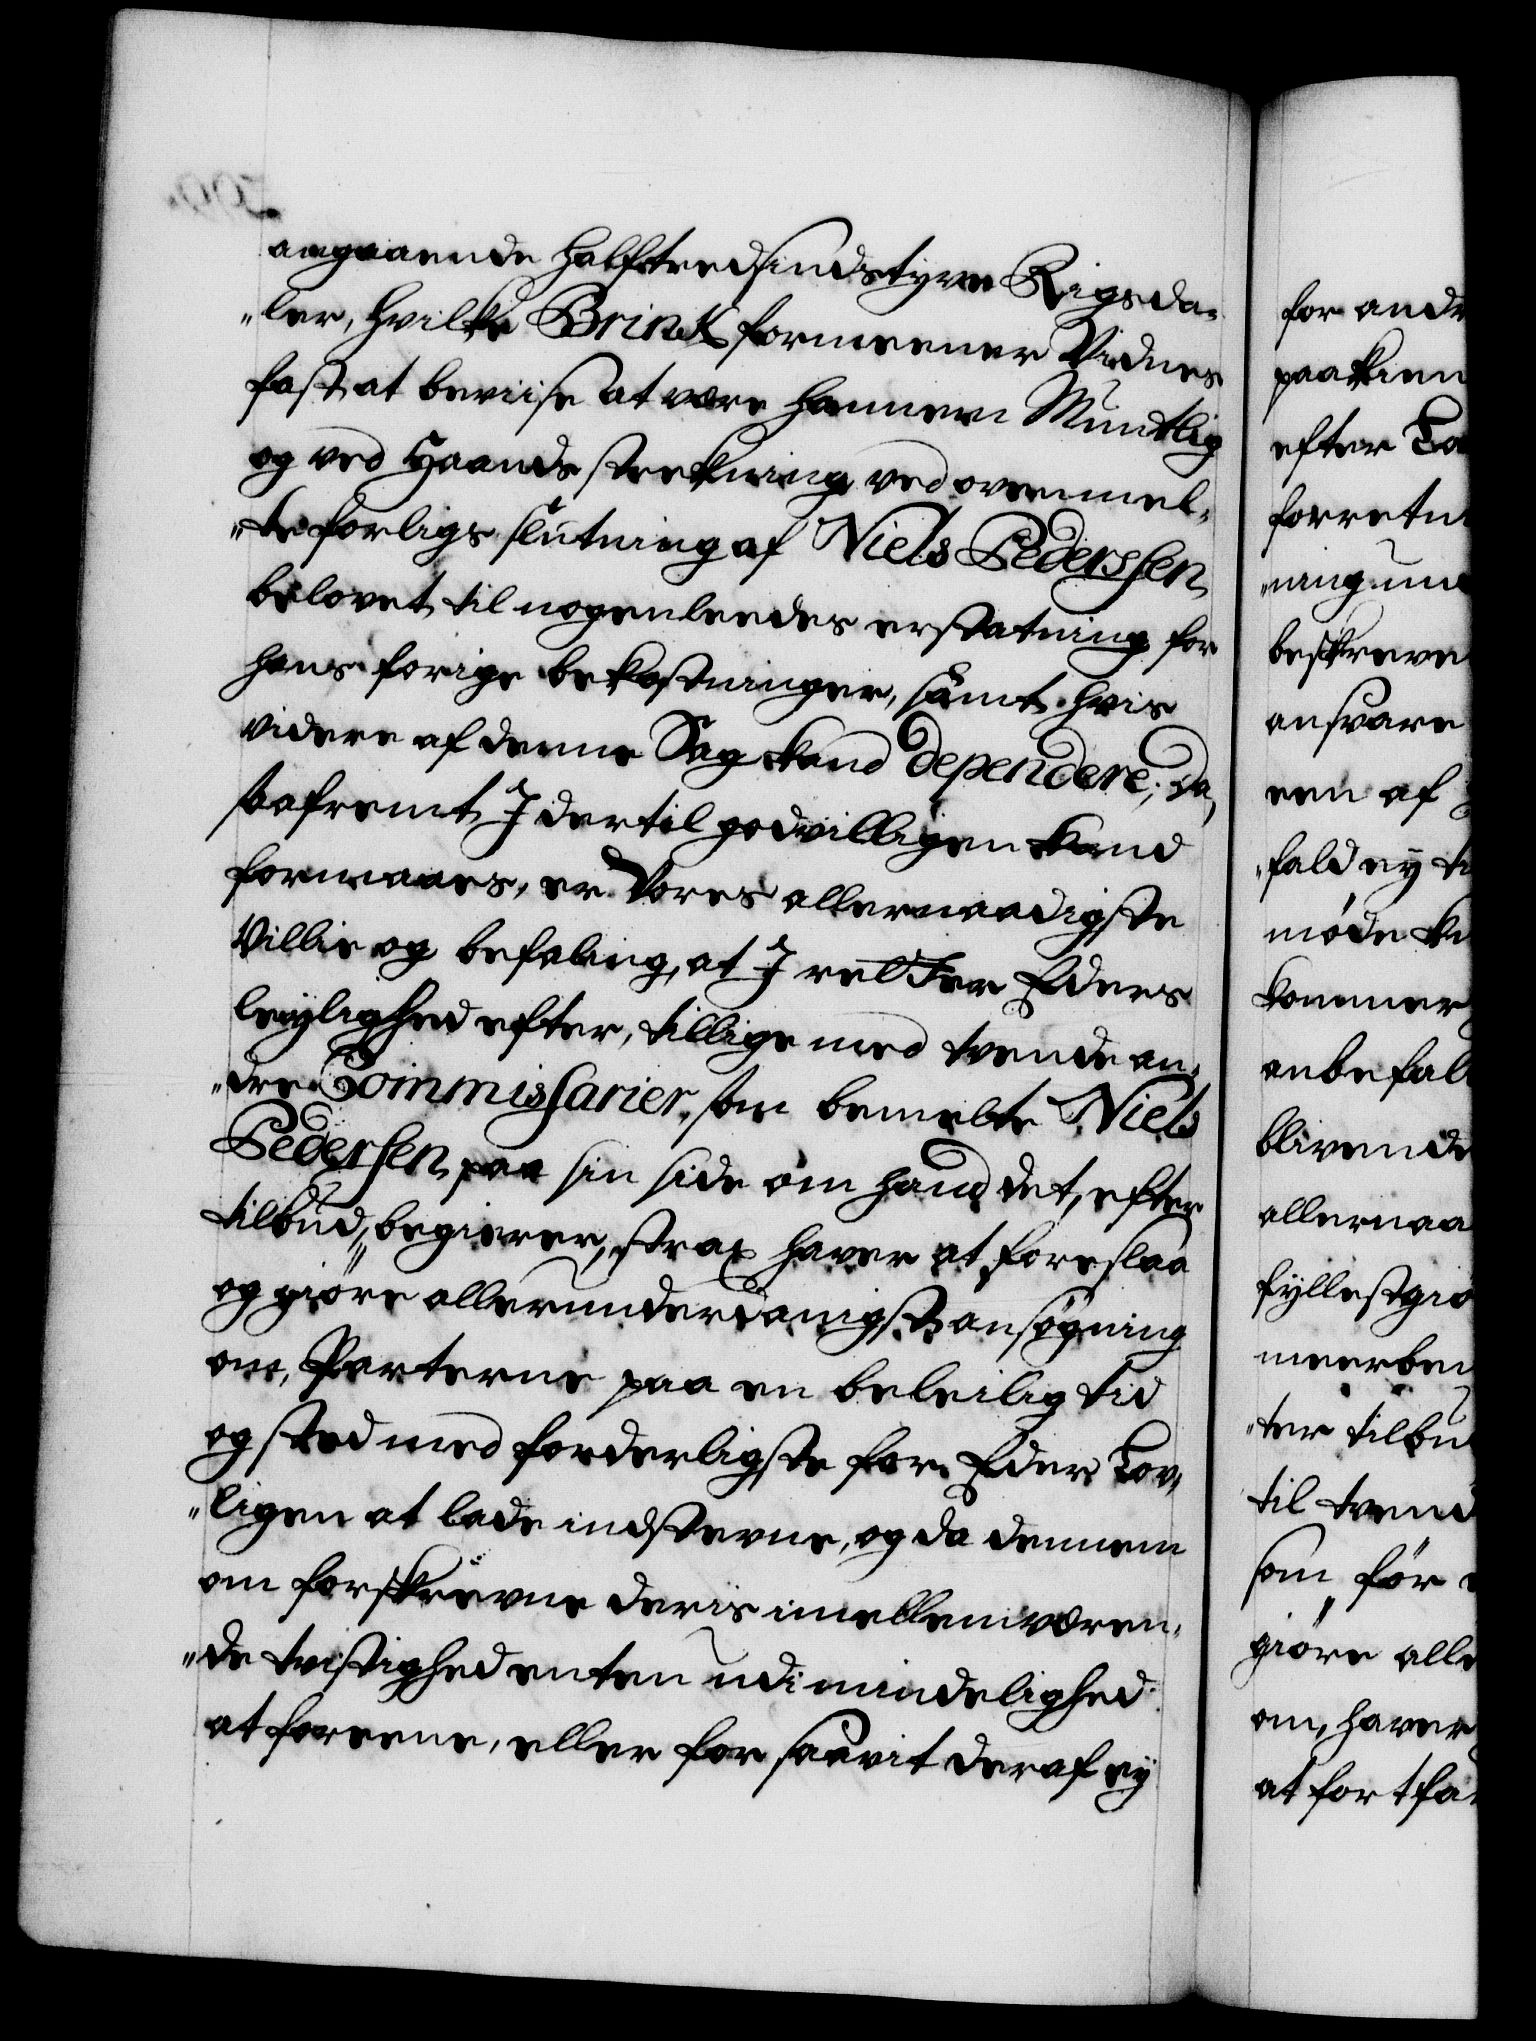 angaaende halftredsindstyve Rigsda„
„ler, hvilke Brinck formeener Vidnes
fast at beviise at være hannem Mundtlig
og ved Haandsstrekning ved ovenmel„
„te forligs slutning af Niels Pederssen
belovet til nogenleedes erstatning for
hans forige bekostninger, samt hvis
videre af denne Sag kand dependere; da,
saafremt I dertil godvilligen kand
formaaes, er Vores allernaadigste
Villie og befaling, at I rettter Eders
leyglighed efter, tillige med tvende an„
„dre Commissarier, som bemelte Niels
Pederssen paa sin side om hand det, efter
tilbud, begierer, strax haver at foreslaa
og giøre allerunderdanigst ansøgning
om, Parterne paa en beleilig tid
og sted med forderligste for Eder Lov„
„ligen at lade indstevne, og da dennem
om forskrevne deris imellemværen„
„de tvistighed enten udi mindelighed
at foreene, eller for saavit deraf ey
for andr
paakien
efter Lo
forretni
„ning und
beskreve
ansvare
een af
„fald ey ti
møde k
kommer
anbefal
blivende
allernaa
fyllestgiø
meerbem
„ter tilbu
til tvend
som før
giøre alle
om, haver
at fortfa